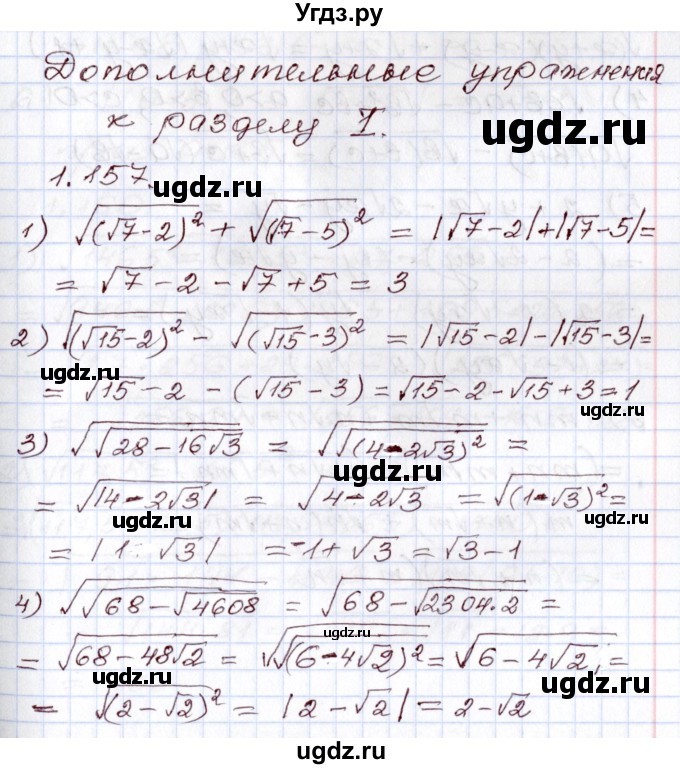 Угдз.ру
Дополнительные упражнения
к разделу I.
ugdz.ru
1.157.
ugdz.ru
1) √(√7-2)² + √(√7-5)² = |√7-2|+|√7-5|=
= √7-2-√7+5 = 3
ugdz.ru
2) √(√15-2)² - √(√15-3)² = |√15-2|-|√15-3|=
ugdz.ru
= √15-2-(√15-3)=√15-2-√15+3=1
3) √√28-16√3 = √√(4-2√3)² =
ugdz.ru
= √|4-2√3| = √4-2√3 = √(1-√3)²=
ugdz.ru
= |1-√3| =-1+√3 = √3-1
4) √√68-√4608 = √68-√2304·2 =
ugdz.ru
= √68-48√2 = √√(6-4√2)²= √6-4√2 =
ugdz.ru
ugdz.ru
= √(2-√2)² = |2-√2| = 2-√2
ugdz.ru